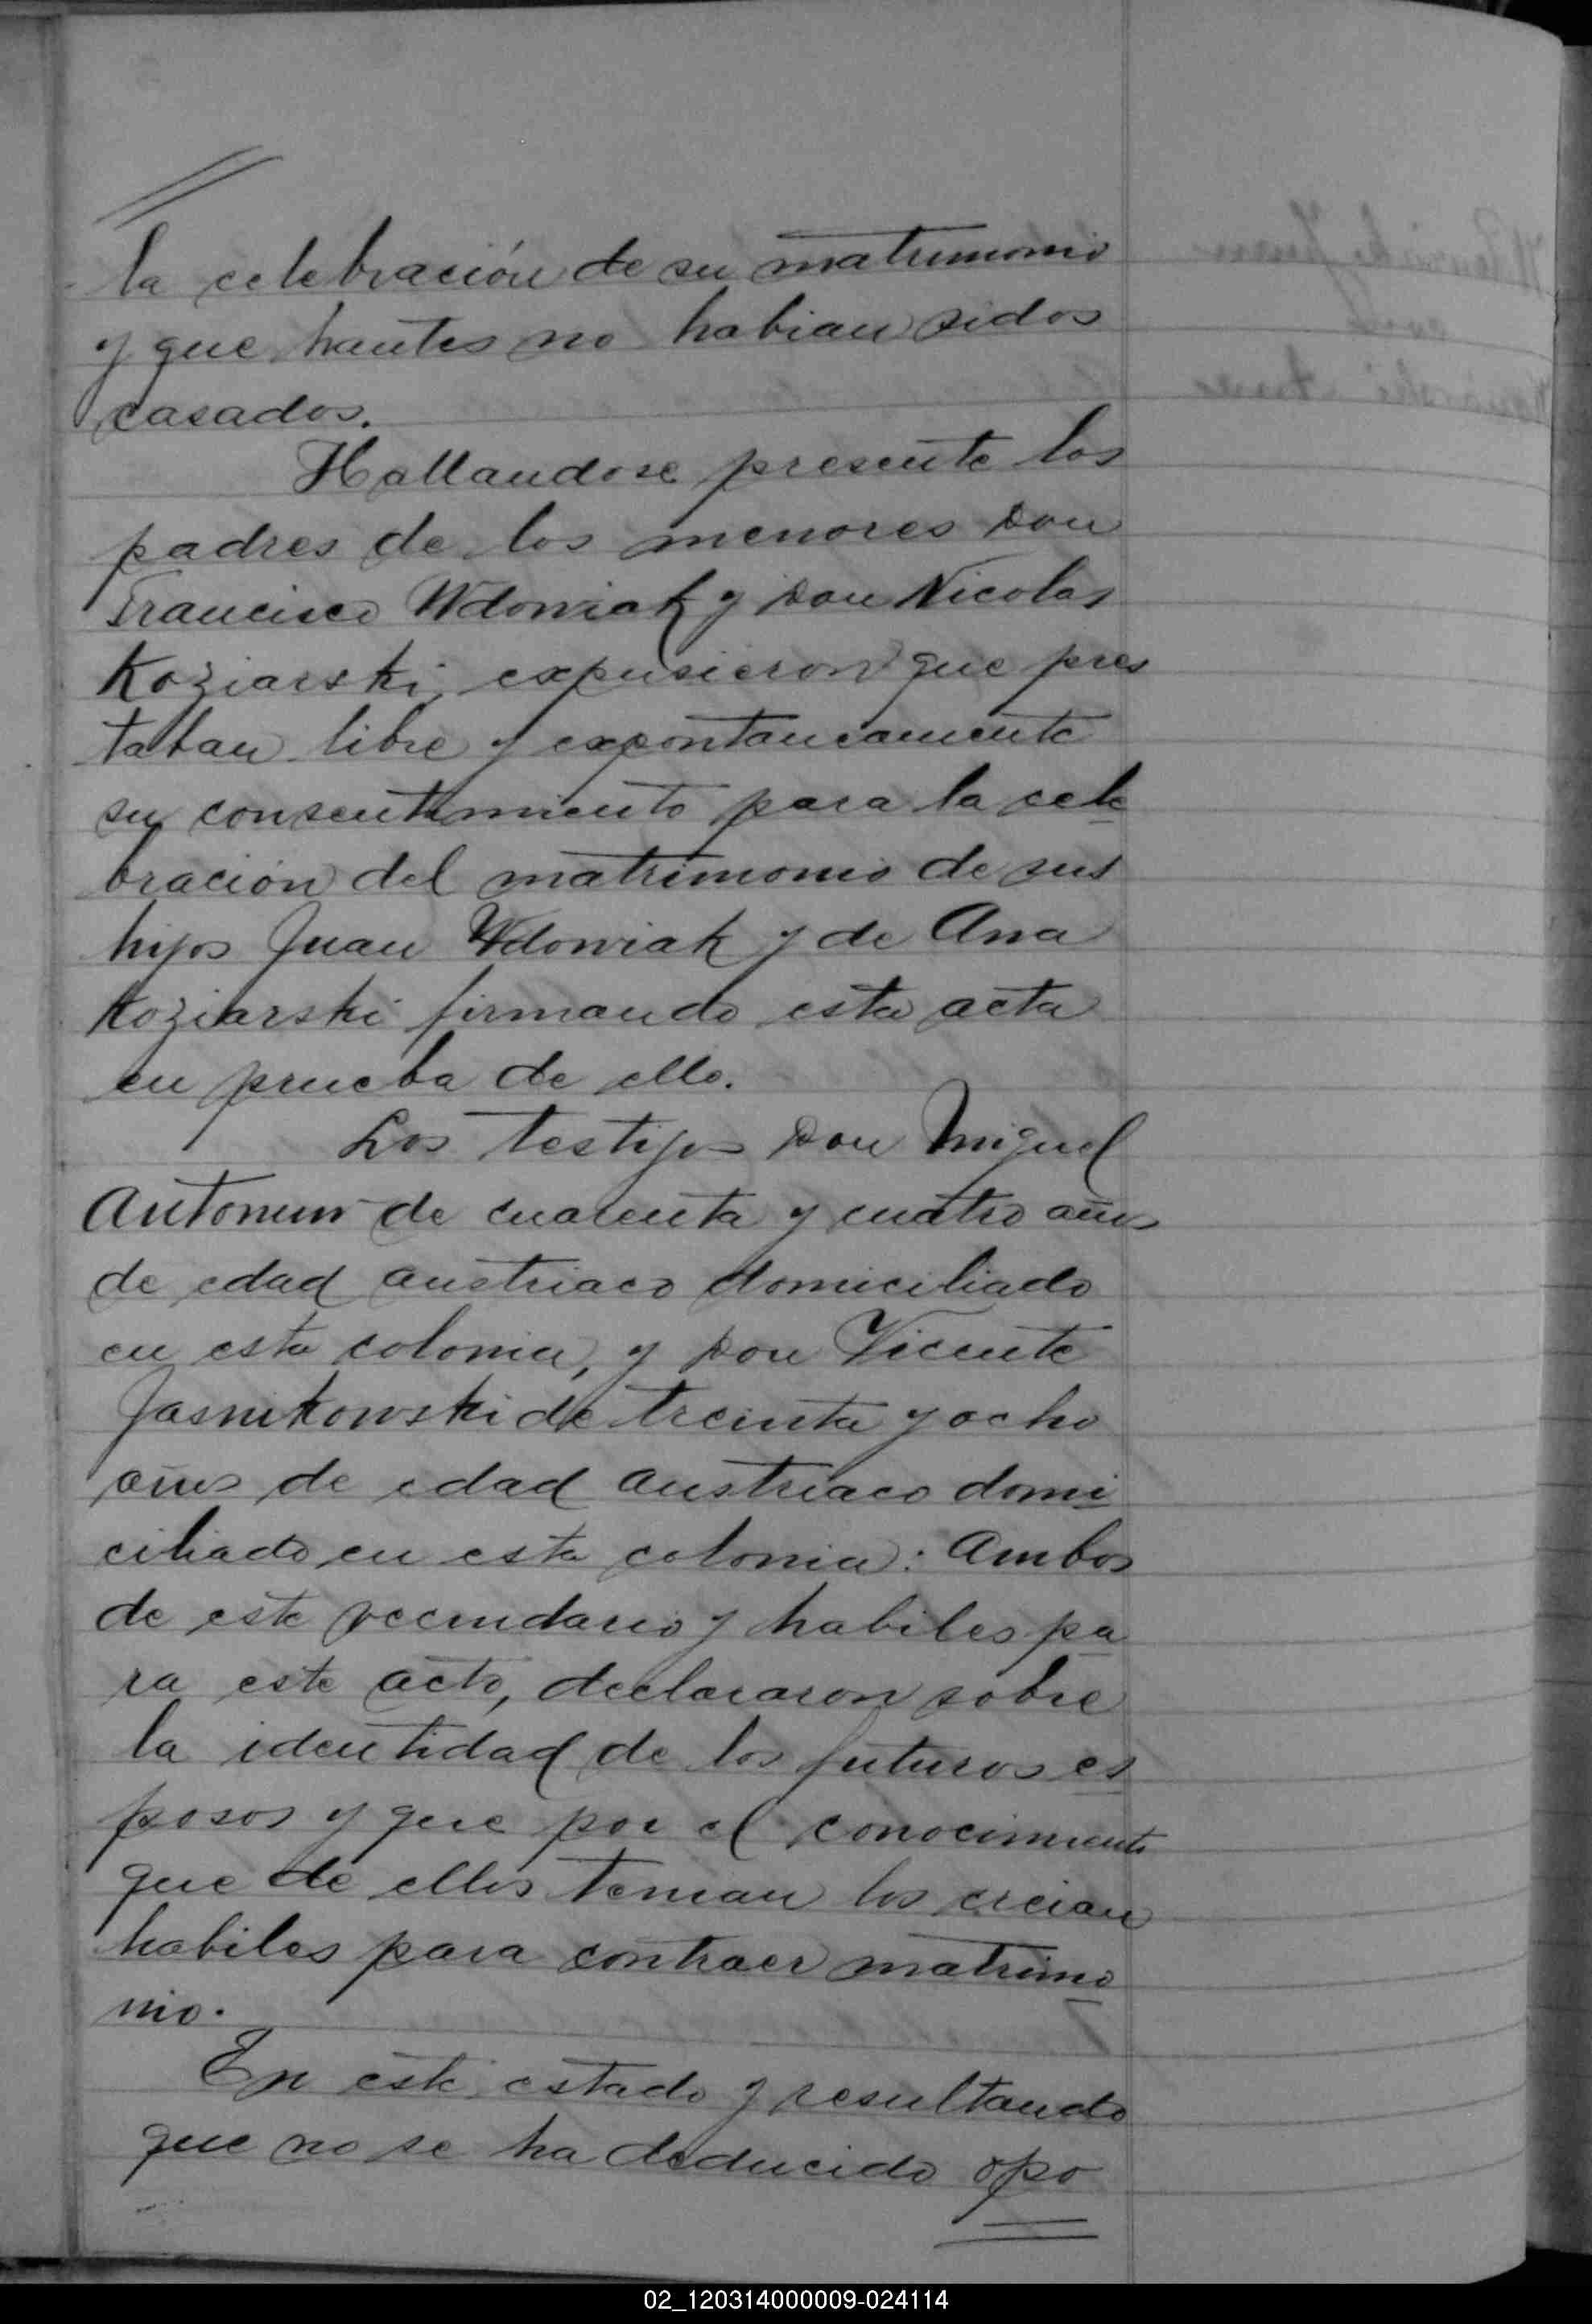 la celebración de su matrimonio
y que hantes no habian sidos
casados.
Hallandose presente los
padres de los menores Don
Francisco Wdowiak y Don Nicolas
Koziarski, expusieron que pres
taban libre y expontaneamente
su consentimiento para la cele
bración del matrimonio de sus
hijos Juan Wdowiak y de Ana
Koziarski firmando esta acta
en prueba de ello.
Los testijos Don Miguel
Antoniw de cuarenta y cuatro años
de edad austriaco domiciliado
en esta colonia, y Don Vicente
Jasnikowski de treinta y ocho
años de edad austriaco domi
ciliado en esta colonia: Ambos
de este vecindario y habiles pa
ra este acto, declararon sobre
la identidad de los futuros es
posos y que por el conocimiento
que de ellos tenian los creian
habiles para contraer matrimo
nio.
En este estado y resultando
que no se ha deducido opo
02_120314000009-024114